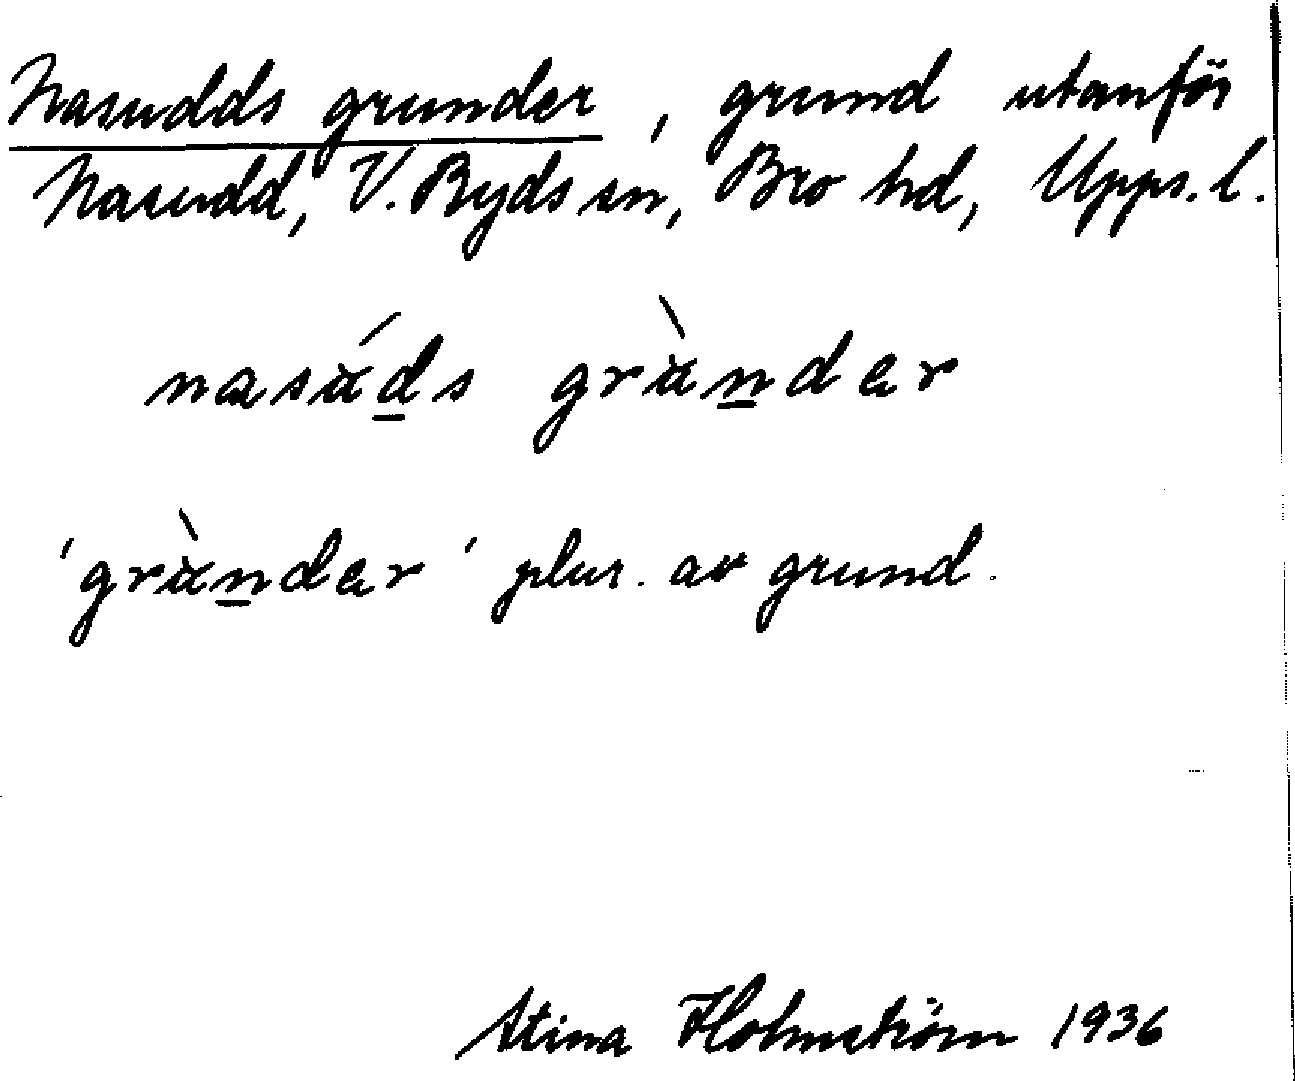 Nasudds grunder, grund utanför
Nasudd, V. Ryds sn, Bro hd, Upps. l.
nasä́ds grä̀nder
'grä̀nder' plur. av grund.
Stina Holmström 1936